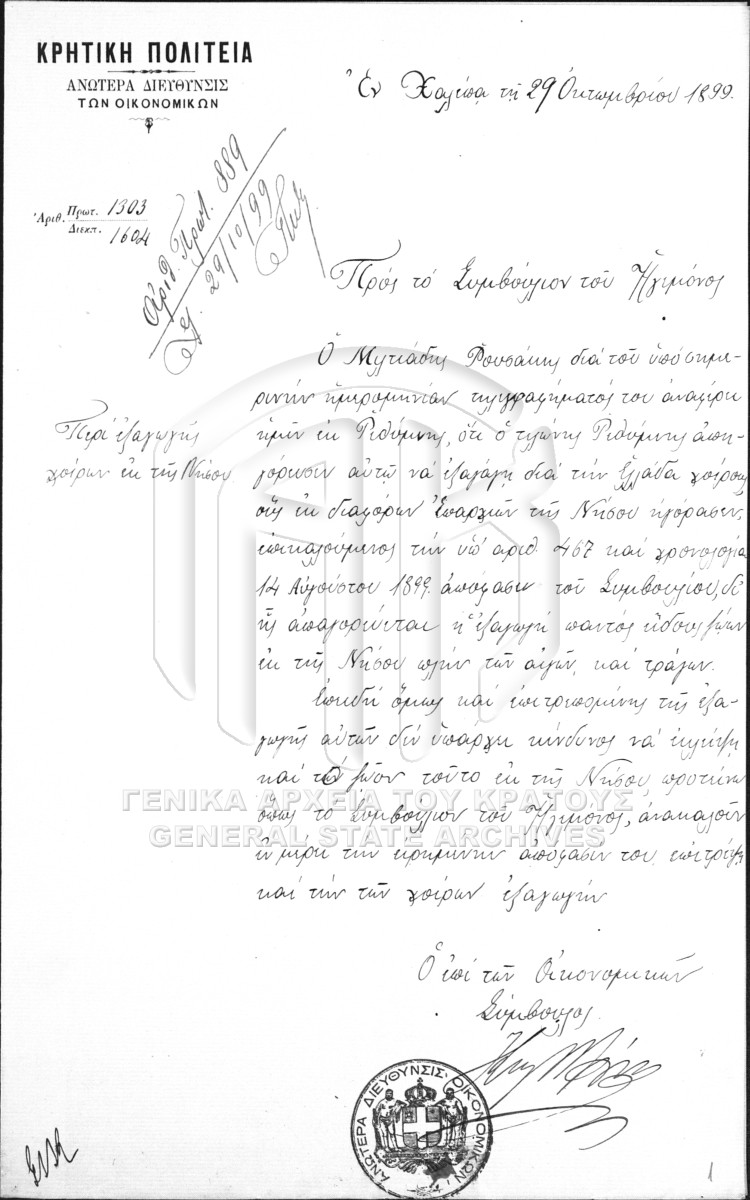 ΚΡΗΤΙΚΗ ΠΟΛΙΤΕΙΑ
ΑΝΩΤΕΡΑ ΔΙΕΥΘΥΝΣΙΣ
ΤΩΝ ΟΙΚΟΝΟΜΙΚΩΝ
Ἐν Χαλέπᾳ τῇ 29 Ὀκτωμβρίου 1899.
Ἀριθ. Πρωτ. 1303
Διεκπ. 1604
Ἀριθ. Πρωτ. 889
29/10/99
Πρός τό Συμβούλιον τοῦ Ἡγεμόνος
Περί ἐξαγωγῆς
χοίρων ἐκ τῆς Νήσου
Ὁ Μιλτιάδης Ρουσάκης διά τοῦ ὑπό σημε-
ρινήν ἡμερομηνίαν τηλεγραφήματός του ἀναφέρει
ἡμῖν ἐκ Ρεθύμνης, ὅτι ὁ τελώνης Ρεθύμνης ἀπη-
γόρευσεν αὐτῷ νά ἐξαγάγῃ διά τήν Ἑλλάδα χοίρους
οὕς ἐκ διαφόρων Ἐπαρχιῶν τῆς Νήσου ἠγόρασεν,
ἐπικαλούμενος τήν ὑπ' ἀριθ. 467 καί χρονολογίαν
14 Αὐγούστου 1899 ἀπόφασιν τοῦ Συμβουλίου, δι'
ἧς ἀπαγορεύεται ἡ ἐξαγωγή παντός εἴδους ζώων
ἐκ τῆς Νήσου πλήν τῶν αἰγῶν καί τράγων.
Ἐπειδή ὅμως καί ἐπιτρεπομένης τῆς ἐξα-
γωγῆς αὐτῶν δέν ὑπάρχει κίνδυνος νά ἐκλείψῃ
καί τό ζῶον τοῦτο ἐκ τῆς Νήσου, προτείνω
ὅπως τό Συμβούλιον τοῦ Ἡγεμόνος, ἀνακαλοῦν
ἐν μέρει τήν εἰρημένην ἀπόφασίν του, ἐπιτρέψῃ
καί τήν τῶν χοίρων ἐξαγωγήν
Ὁ ἐπί τῶν Οἰκονομικῶν
Σύμβουλος
ΑΝΩΤΕΡΑ ΔΙΕΥΘΥΝΣΙΣ ΟΙΚΟΝΟΜΙΚΩΝ
ΓΕΝΙΚΑ ΑΡΧΕΙΑ ΤΟΥ ΚΡΑΤΟΥΣ
GENERAL STATE ARCHIVES
1